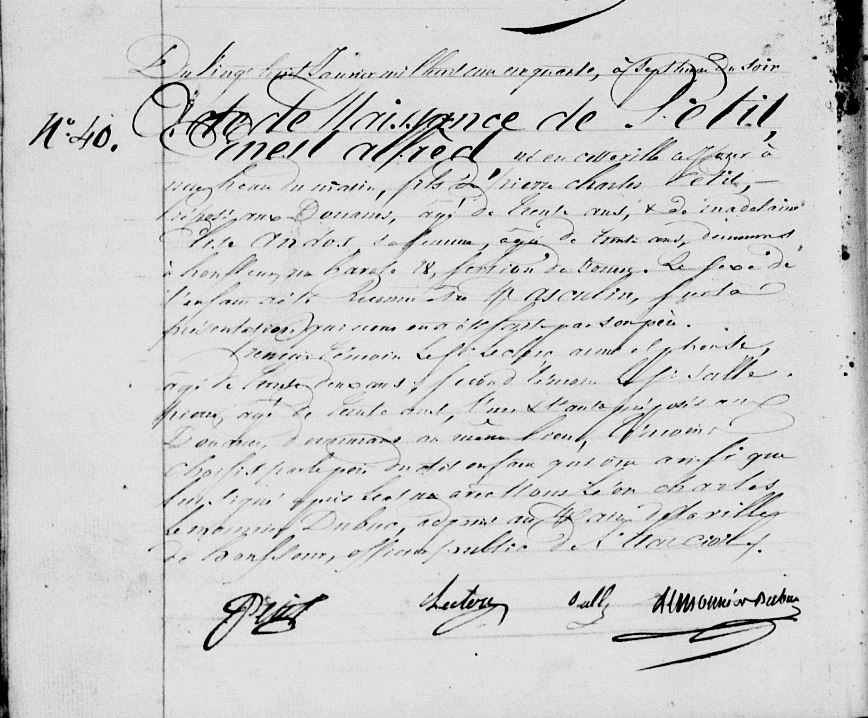 Du vingt huit Janvier mil huit cent cinquante, à sept heures du soir
N° 40.
Acte de Naissance de Petit,
Ernest alfred né en cette ville ce jour à
neuf heures du matin, fils de pierre charles Petit,
préposé aux Douanes, âgé de trente ans, & de madelaine
Elise sa femme, âgée de trente ans, demeurant
à honfleur, rue haute 78, section de Rouen. Le sexe de
l'enfant a été Reconnu être Masculin, sur la
présentation qui nous en a été faite par son père.
Premier témoin le Sr Leclerc aimé alphonse,
âgé de trente deux ans, second témoin le Sr Sallé
pierre, âgé de trente ans, l'un & l'autre préposés aux
Douanes, demeurant au même lieu, témoins
choisis par le père du dit enfant qui ont ainsi que
lui signé après lecture avec Nous Léon charles
Lemonnier Dubuc, adjoint au Maire de la ville
de honfleur, officier public de l'état civil.
Petit Leclerc Sallé Lemonnier Dubuc